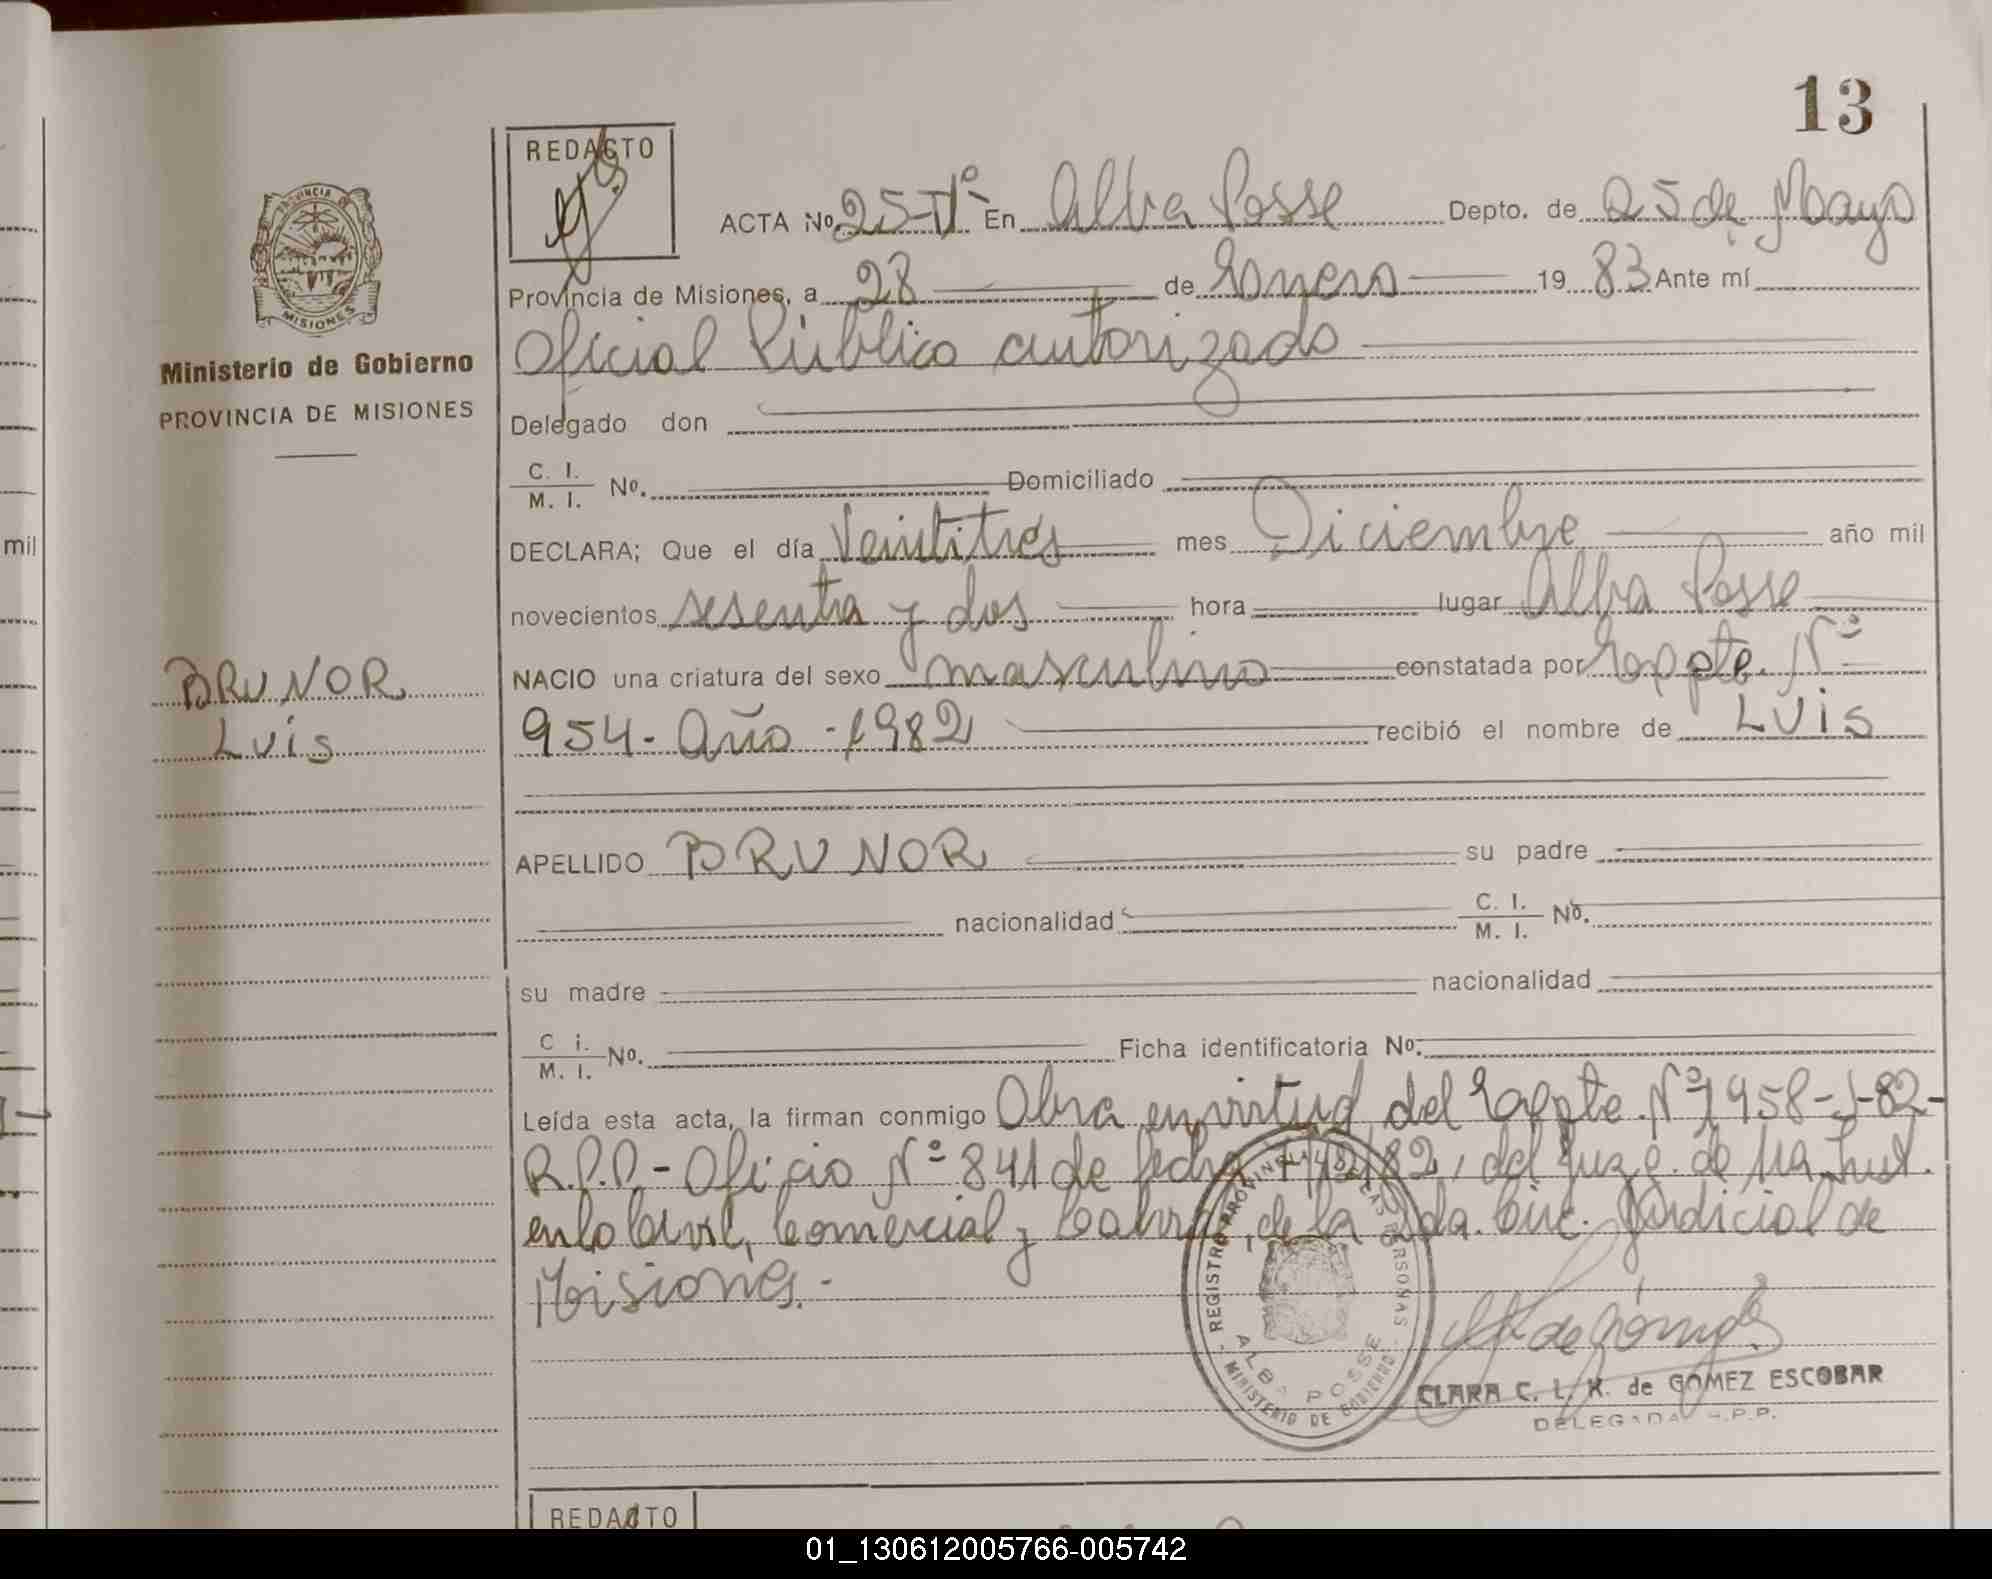 13
REDACTO
ACTA No. 25-Tº- En Alba Posse Depto. de 25 de Mayo
PROVINCIA
MISIONES
Provincia de Misiones, a 28 de Enero 19 83 Ante mí
Oficial Público autorizado
Ministerio de Gobierno
PROVINCIA DE MISIONES
Delegado don
C. I.
M. I. No. Domiciliado
mil
DECLARA; Que el día Veintitrés mes Diciembre año mil
novecientos sesenta y dos hora lugar Alba Posse
BRUNOR
Luis
NACIO una criatura del sexo masculino constatada por Expte. Nº
954- Año -1982 recibió el nombre de Luis
APELLIDO BRUNOR su padre
nacionalidad C. I.
M. I. No.
su madre nacionalidad
C i.
M. I. No. Ficha identificatoria No.
Leída esta acta, la firman conmigo Obra en virtud del Expte. Nº 958-J-82-
R.P.P.- Oficio Nº 841 de fecha /82, del Juzg. de 1ra. Inst.
en lo Civil, Comercial y Laboral, de la 2da. Circ. Judicial de
Misiones.-
REGISTRO PROVINCIAL DE LAS PERSONAS
ALBA POSSE
MINISTERIO DE GOBIERNO
de Gómez
CLARA C. L. K. de GOMEZ ESCOBAR
DELEGADA R.P.P.
REDACTO
01_130612005766-005742